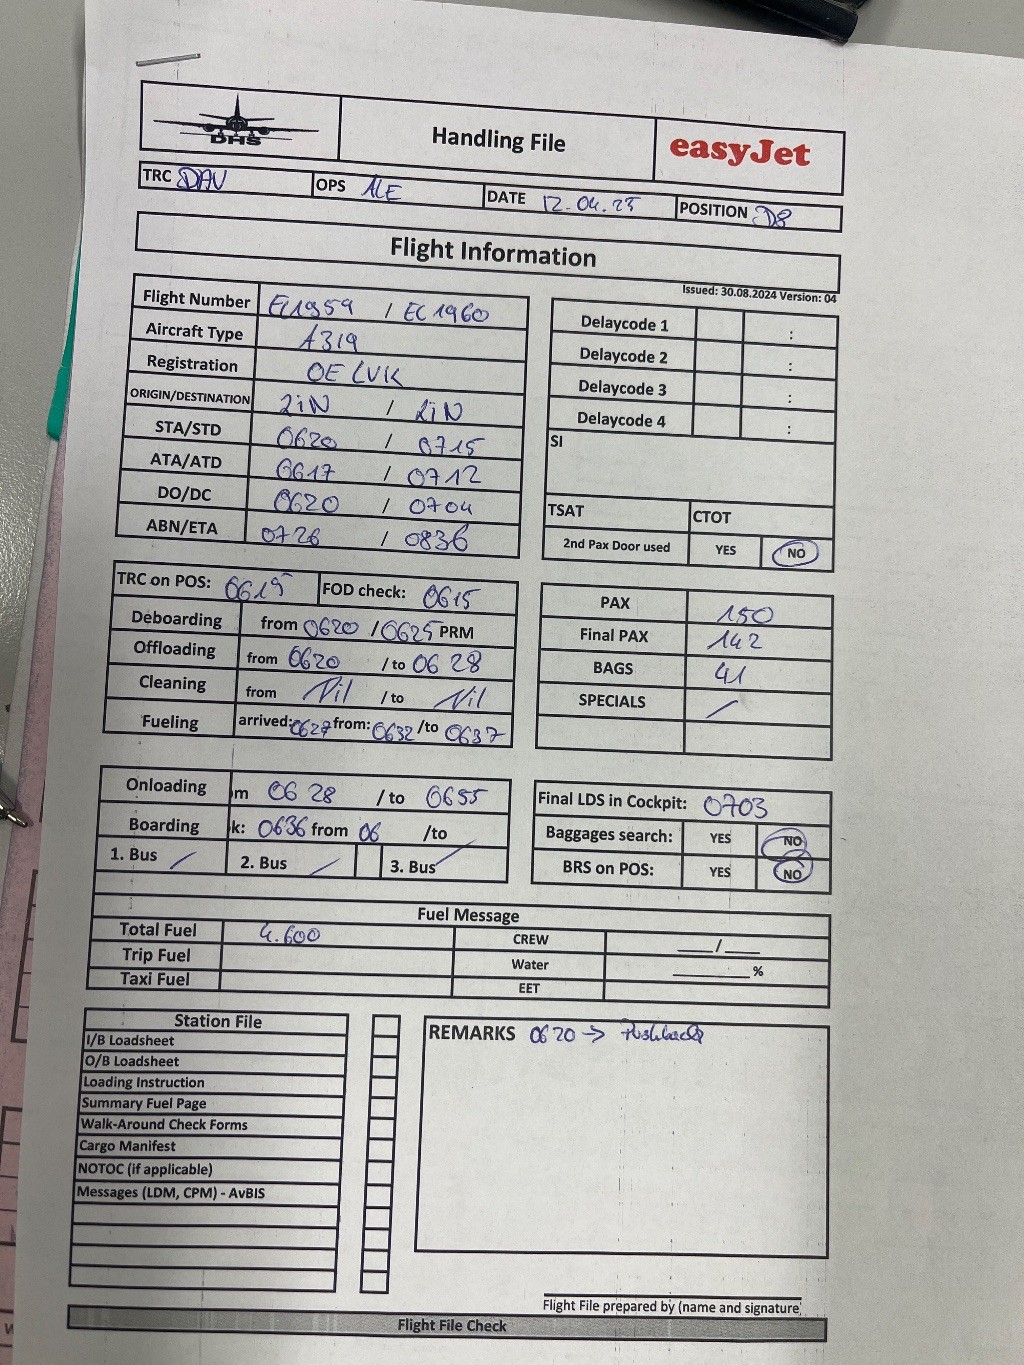 DHS
Handling File
easyJet
TRC DAV OPS ALE DATE 12.04.25 POSITION D8
Flight Information
Issued: 30.08.2024 Version: 04
Flight Number EC1959 / EC1960
Aircraft Type A319
Registration OE LVK
ORIGIN/DESTINATION LiN / LiN
STA/STD 0620 / 0715
ATA/ATD 0617 / 0712
DO/DC 0620 / 0704
ABN/ETA 0726 / 0836
Delaycode 1 :
Delaycode 2 :
Delaycode 3 :
Delaycode 4 :
SI
TSAT CTOT
2nd Pax Door used YES NO
TRC on POS: 0615 FOD check: 0615
Deboarding from 0620 / 0625 PRM
Offloading from 0620 /to 06 28
Cleaning from Nil /to Nil
Fueling arrived: 0627 from: 0632 /to 0637
PAX 150
Final PAX 142
BAGS 41
SPECIALS /
Onloading m 06 28 /to 0655
Boarding k: 0636 from 06 /to
1. Bus / 2. Bus / 3. Bus /
Final LDS in Cockpit: 0703
Baggages search: YES NO
BRS on POS: YES NO
Fuel Message
Total Fuel 4.600 CREW ___/___
Trip Fuel Water ________%
Taxi Fuel EET
Station File
I/B Loadsheet
O/B Loadsheet
Loading Instruction
Summary Fuel Page
Walk-Around Check Forms
Cargo Manifest
NOTOC (if applicable)
Messages (LDM, CPM) - AvBIS
REMARKS 0620 → Pushback
Flight File prepared by (name and signature
Flight File Check